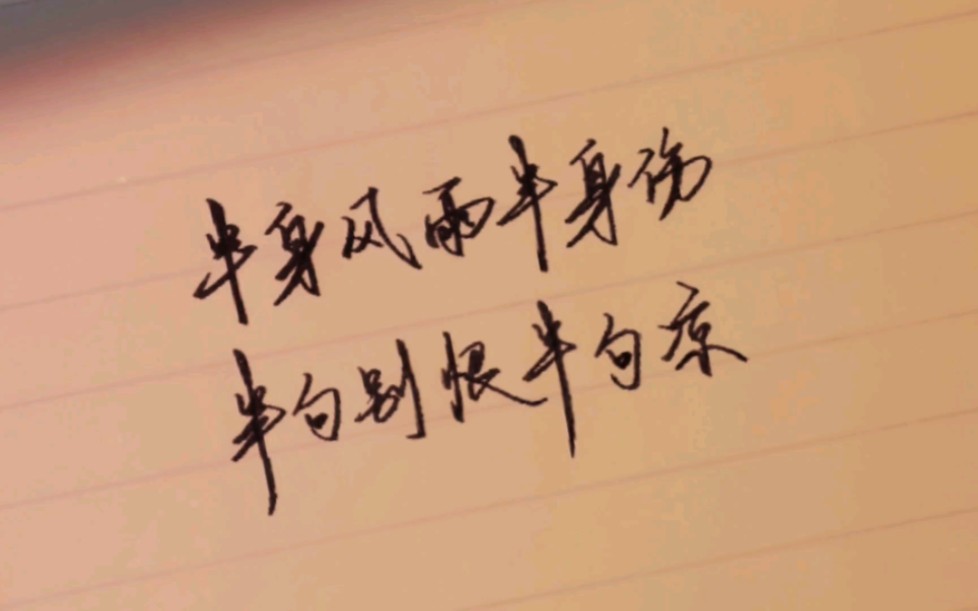 半身风雨半身伤
半句别恨半句凉